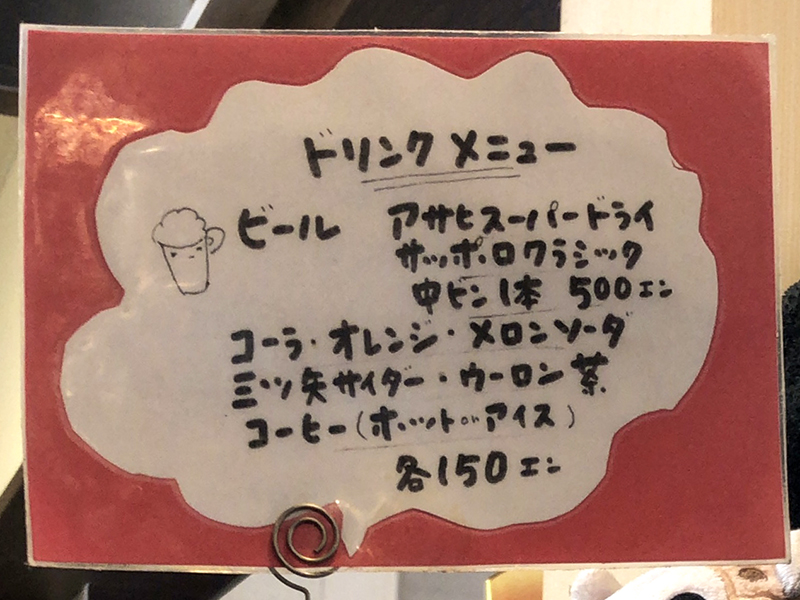 ドリンクメニュー
ビール アサヒスーパードライ
サッポロクラシック
中ビン1本 500エン
コーラ・オレンジ・メロンソーダ
三ツ矢サイダー・ウーロン茶
コーヒー(ホットorアイス)
各150エン